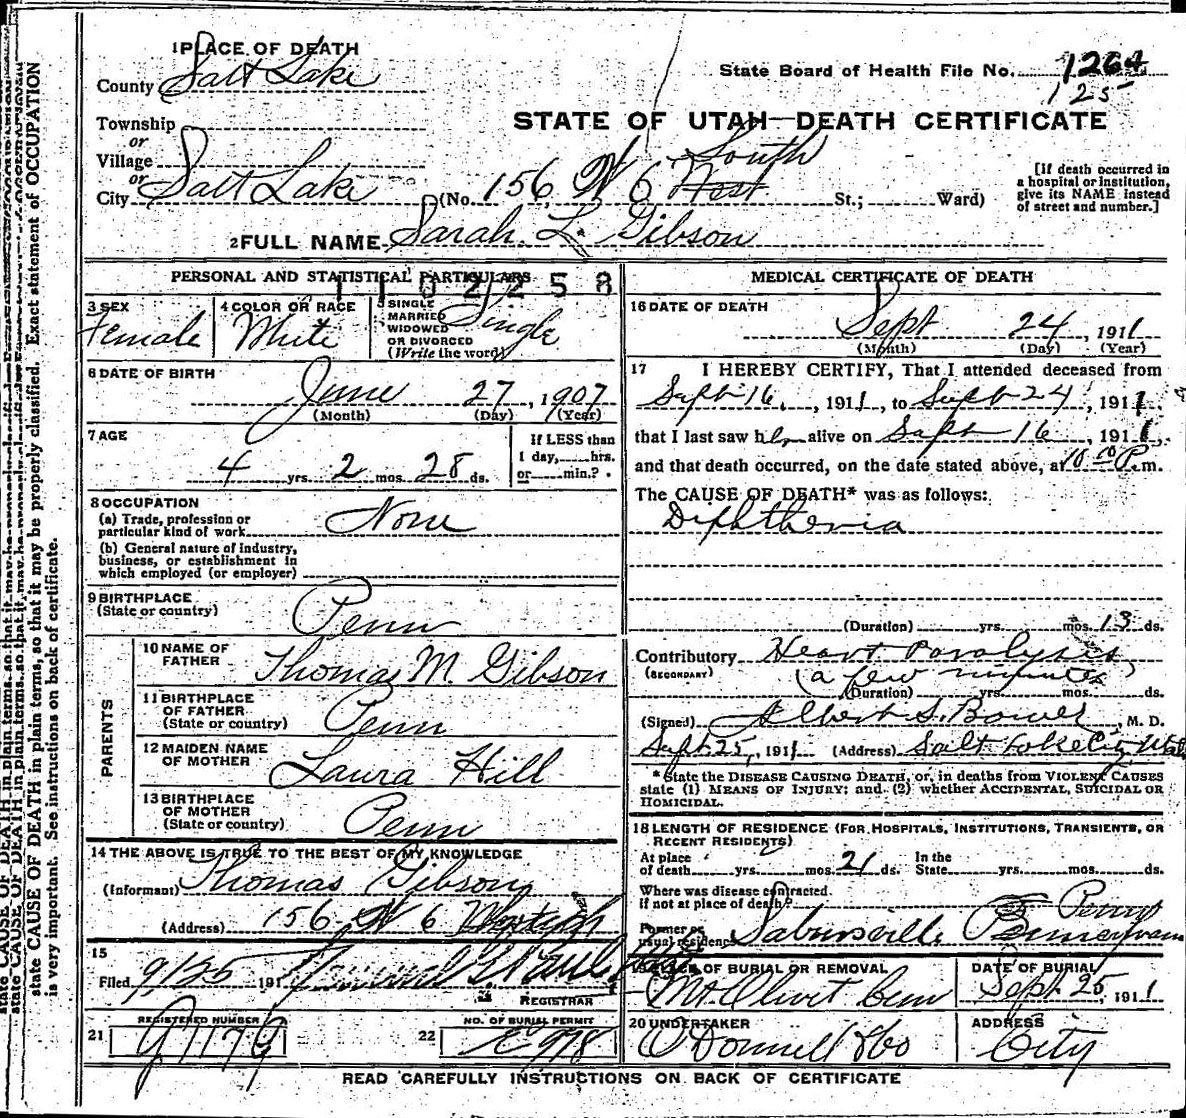 1 PLACE OF DEATH
County Salt Lake
State Board of Health File No. 1264
125
Township
or
Village
or
City Salt Lake
STATE OF UTAH—DEATH CERTIFICATE
(No. 156 N 6 West South St.; Ward)
[If death occurred in a hospital or institution, give its NAME instead of street and number.]
2 FULL NAME Sarah L. Gibson
PERSONAL AND STATISTICAL PARTICULARS
1102258
3 SEX
Female
4 COLOR OR RACE
White
5 SINGLE MARRIED WIDOWED OR DIVORCED (Write the word)
Single
6 DATE OF BIRTH
June 27, 1907
(Month) (Day) (Year)
7 AGE
4 yrs. 2 mos. 28 ds.
If LESS than
1 day, hrs.
or min.?
8 OCCUPATION
(a) Trade, profession or
particular kind of work None
(b) General nature of industry,
business, or establishment in
which employed (or employer)
9 BIRTHPLACE
(State or country)
Penn
PARENTS
10 NAME OF FATHER
Thomas M. Gibson
11 BIRTHPLACE OF FATHER
(State or country)
Penn
12 MAIDEN NAME OF MOTHER
Laura Hill
13 BIRTHPLACE OF MOTHER
(State or country)
Penn
14 THE ABOVE IS TRUE TO THE BEST OF MY KNOWLEDGE
(Informant) Thomas Gibson
(Address) 156 N 6
15
Filed 9/25 191
REGISTRAR
REGISTERED NUMBER
21
NO. OF BURIAL PERMIT
22
MEDICAL CERTIFICATE OF DEATH
16 DATE OF DEATH
Sept 24, 1911
(Month) (Day) (Year)
17 I HEREBY CERTIFY, That I attended deceased from
Sept 16, 1911, to Sept 24, 1911,
that I last saw her alive on Sept 16, 1911,
and that death occurred, on the date stated above, at 10 10 P.m.
The CAUSE OF DEATH* was as follows:
Diphtheria
(Duration) yrs. mos. 13 ds.
Contributory Heart Paralysis
(SECONDARY) (a few minutes)
(Duration) yrs. mos. ds.
(Signed) Albert S. Bower, M. D.
Sept 25, 1911 (Address) Salt Lake City Utah
* State the DISEASE CAUSING DEATH, or, in deaths from VIOLENT CAUSES
state (1) MEANS OF INJURY; and (2) whether ACCIDENTAL, SUICIDAL OR
HOMICIDAL.
18 LENGTH OF RESIDENCE (FOR HOSPITALS, INSTITUTIONS, TRANSIENTS, OR
RECENT RESIDENTS)
At place of death yrs. mos. 21 ds.
In the State yrs. mos. ds.
Where was disease contracted.
If not at place of death? Penn
Former or
usual residence Pennsylvania
19 PLACE OF BURIAL OR REMOVAL
Mt Olivet Cem
DATE OF BURIAL
Sept. 25, 1911
20 UNDERTAKER
O'Donnell & Co
ADDRESS
City
READ CAREFULLY INSTRUCTIONS ON BACK OF CERTIFICATE
state CAUSE OF DEATH in plain terms, so that it may be properly classified. Exact statement of OCCUPATION
is very important. See instructions on back of certificate.